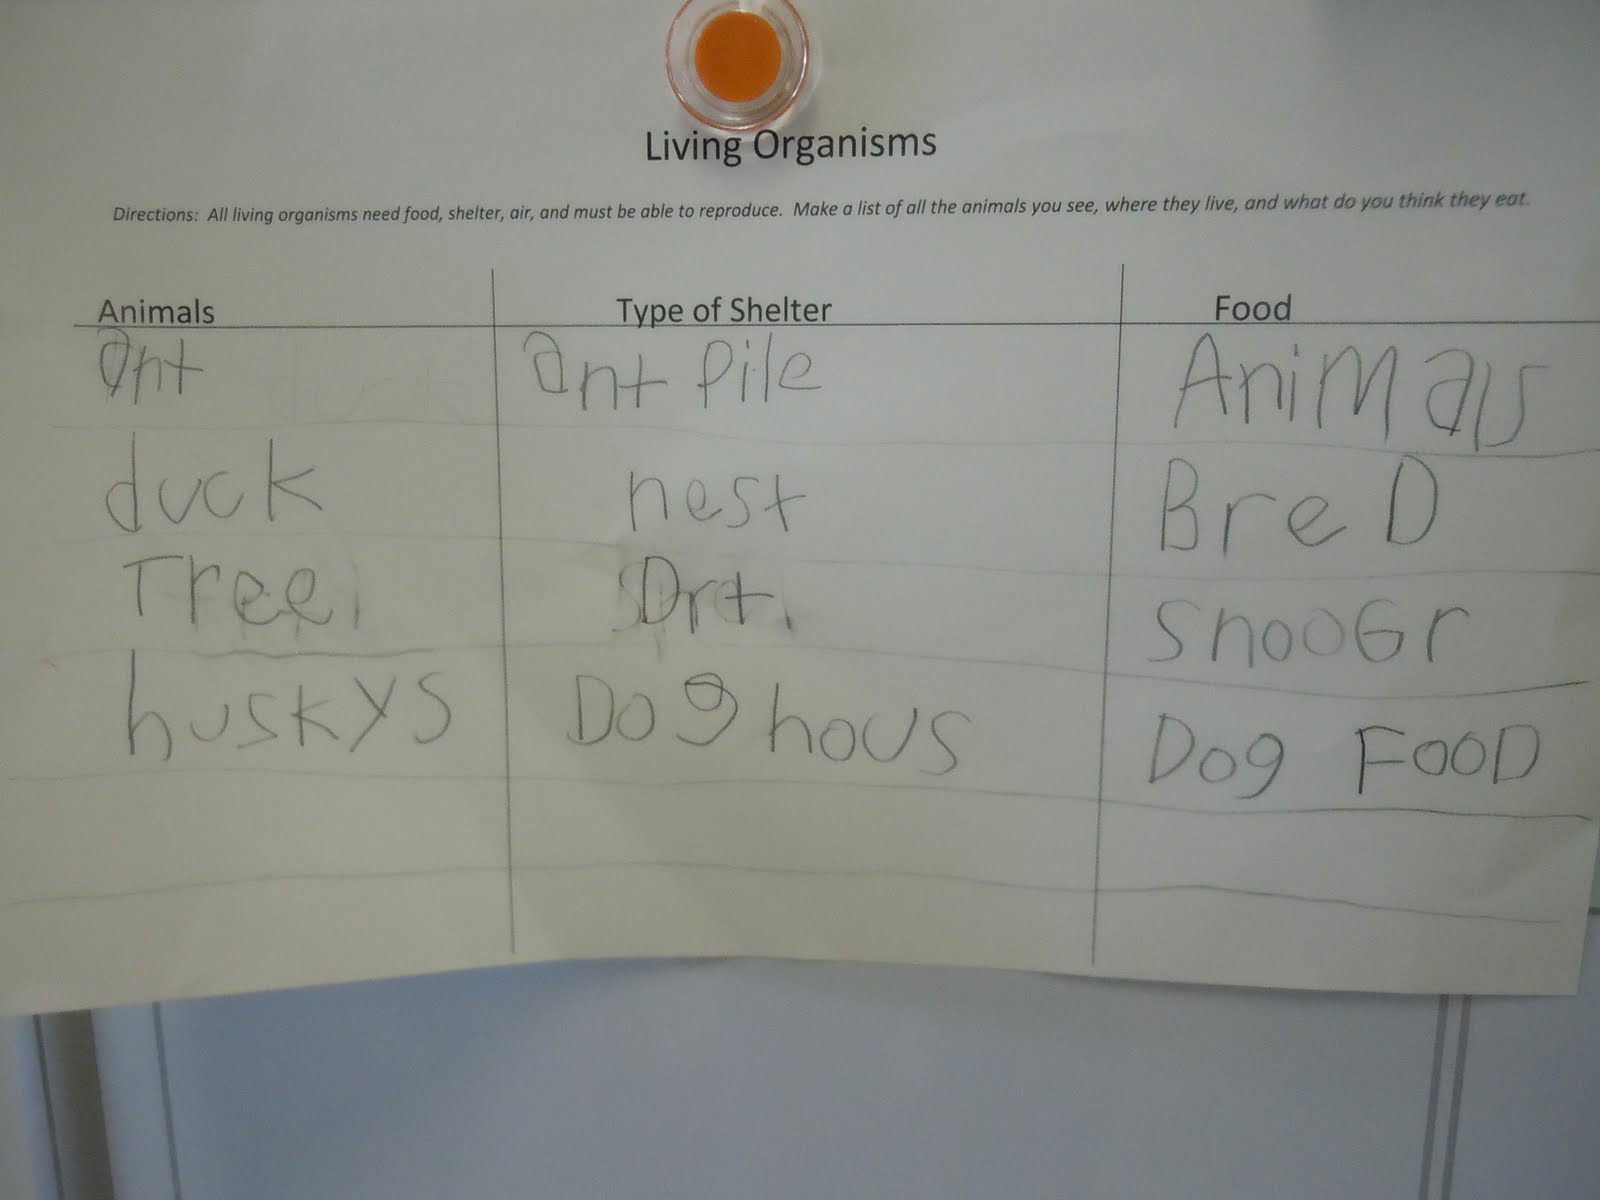 Living Organisms
Directions: All living organisms need food, shelter, air, and must be able to reproduce. Make a list of all the animals you see, where they live, and what do you think they eat.
Animals Type of Shelter Food
ant ant Pile AniMals
duck nest BreD
Tree Drt. SnooGr
huskys Dog hous Dog FOOD